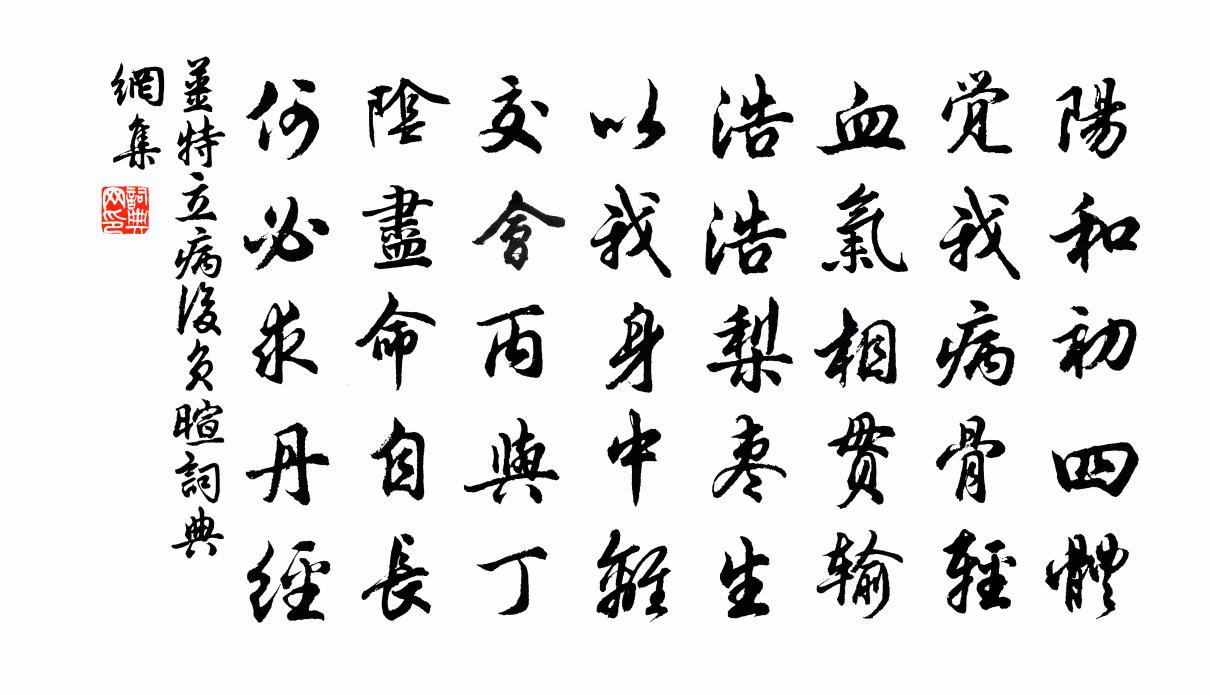 陽和初四體
覚我病骨輕
血氣相貫輸
浩浩梨枣生
以我身中離
交會丙與丁
陰盡命自長
何必求丹經
姜特立病後负暄詞典
網集
詞典
网印